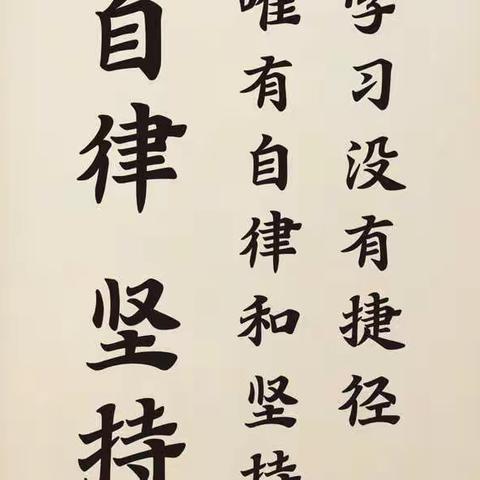 学习没有捷径
唯有自律和坚持
自律 坚持